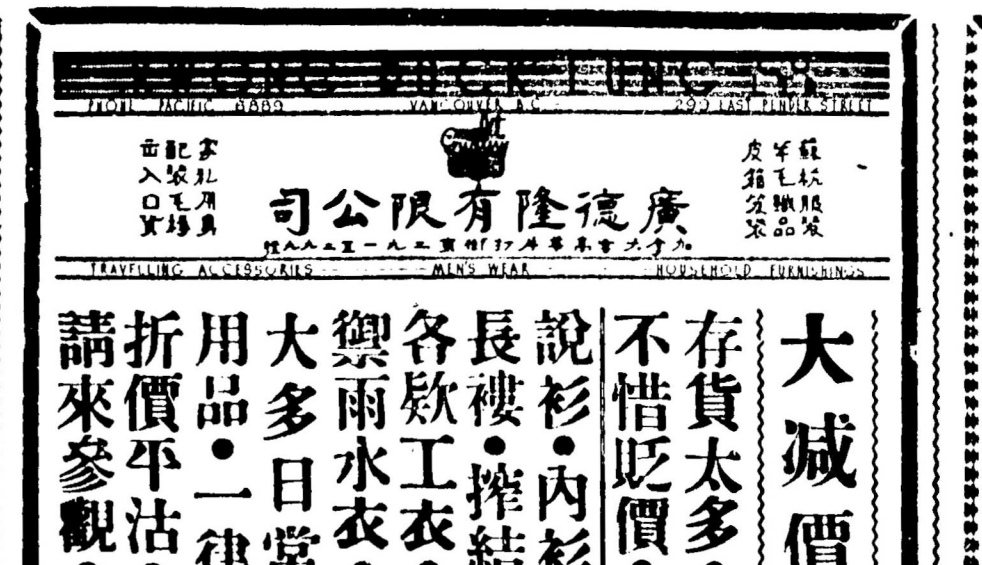 KWONG DUCK LUNG
PHONE PACIFIC 8889 VANCOUVER B.C. 290 EAST PENDER STREET
蘇杭服裝
羊毛織品
皮箱笠袋
家私用具
配裝毛㯋
出入口貨
廣德隆有限公司
TRAVELLING ACCESSORIES MEN'S WEAR HOUSEHOLD FURNISHINGS
大減價
存貨太多●
不惜貶價●
說衫●內衫
長褸●搾結
各欵工衣●
禦雨水衣●
大多日常
用品●一律
折價平沽●
請來參觀●